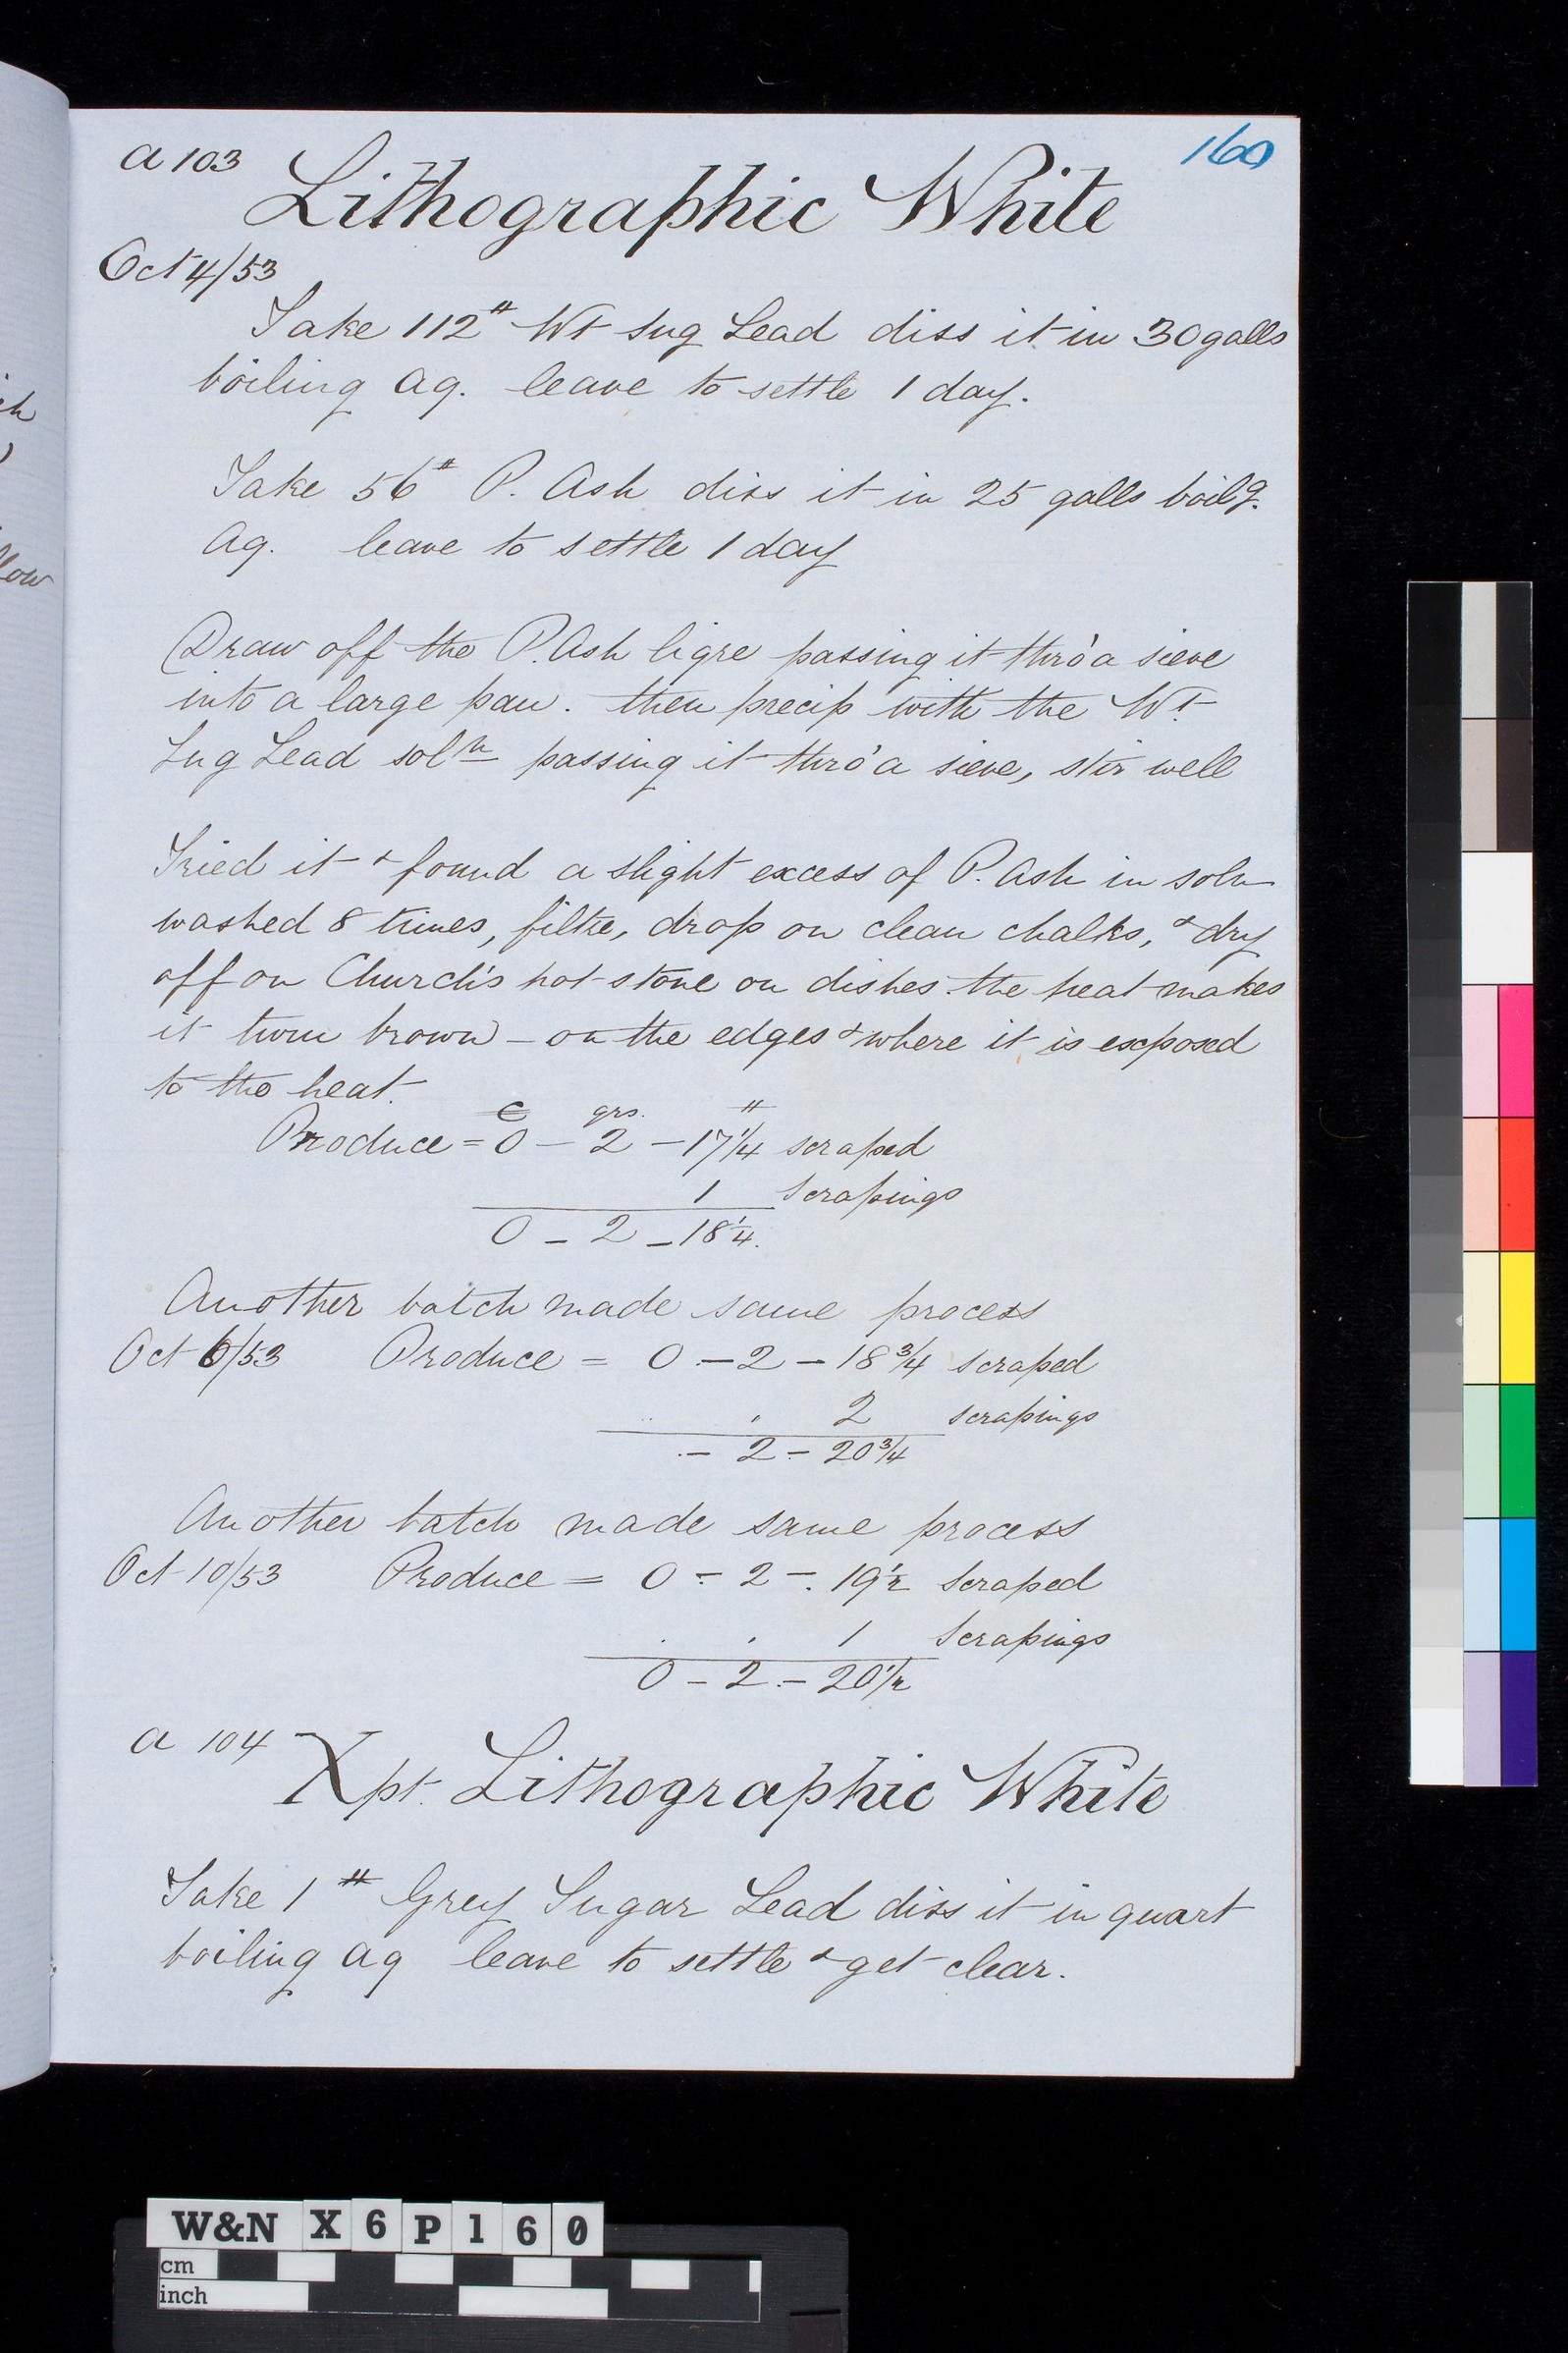 a 103
160
Lithographic White
Oct 4/53
Take 112# Wt Sug Lead diss it in 30 galls
boiling aq. leave to settle 1 day.
Take 56# P. Ash diss it in 25 galls boilg.
aq. leave to settle 1 day
Draw off the P. Ash liqre passing it thro' a sieve
into a large pan. then precip with the Wt
Sug Lead soln passing it thro' a sieve, stir well
Tried it & found a slight excess of P. Ash in soln
washed 8 times, filtre, drop on clean chalks, & dry
off on Church's hot stone on dishes. the heat makes
it turn brown - on the edges & where it is exposed
to the heat.
C qrs. #
Produce = 0 - 2 - 17 1/4 scraped
1 Scrapings
0 - 2 - 18 1/4.
Another batch made same process
Oct 6/53 Produce = 0 - 2 - 18 3/4 scraped
2 scrapings
- 2 - 20 3/4
Another batch made same process
Oct 10/53 Produce = 0 - 2 - 19 1/2 Scraped
1 Scrapings
0 - 2 - 20 1/2
a 104
Xpt. Lithographic White
Take 1# Grey Sugar Lead diss it in quart
boiling aq leave to settle & get clear.
ch
low
W&N X6P160
cm
inch